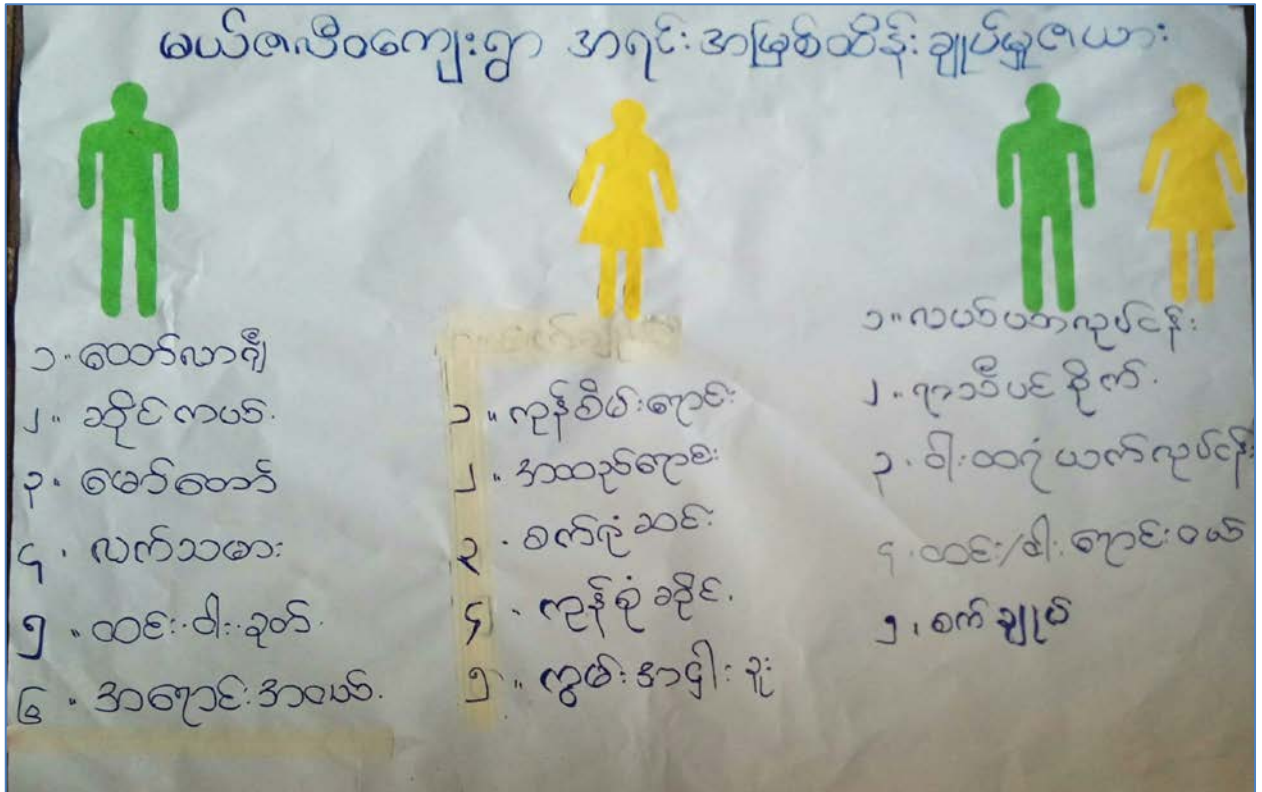 မယ်ဇလီဝကျေးရွာ အရင်းအမြစ်ထိန်းချုပ်မှုဇယား
၁။ ထော်လာဂျီ
၂။ ဆိုင်ကယ်.
၃. မော်တော်
၄. လက်သမား
၅. ထင်း.ဝါး.ခုတ်.
၆. အရောင်းအဝယ်.
၁။ ကုန်စိမ်းရောင်း
၂။ အထည်ရောင်း
၃. စက်ရုံဆင်း
၄. ကုန်စုံဆိုင်.
၅။ ကွမ်း
၁။ လယ်ယာလုပ်ငန်း
၂. ရာသီပင်စိုက်.
၃. ဝါးထရံယက်လုပ်ငန်း
၄. ထင်း/ဝါး ရောင်းဝယ်
၅. စက်ချုပ်